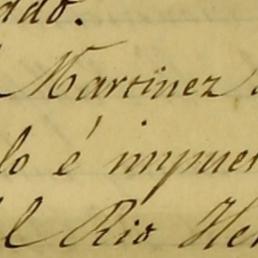 ado.
Martinez
lo é impues
el Rio Her